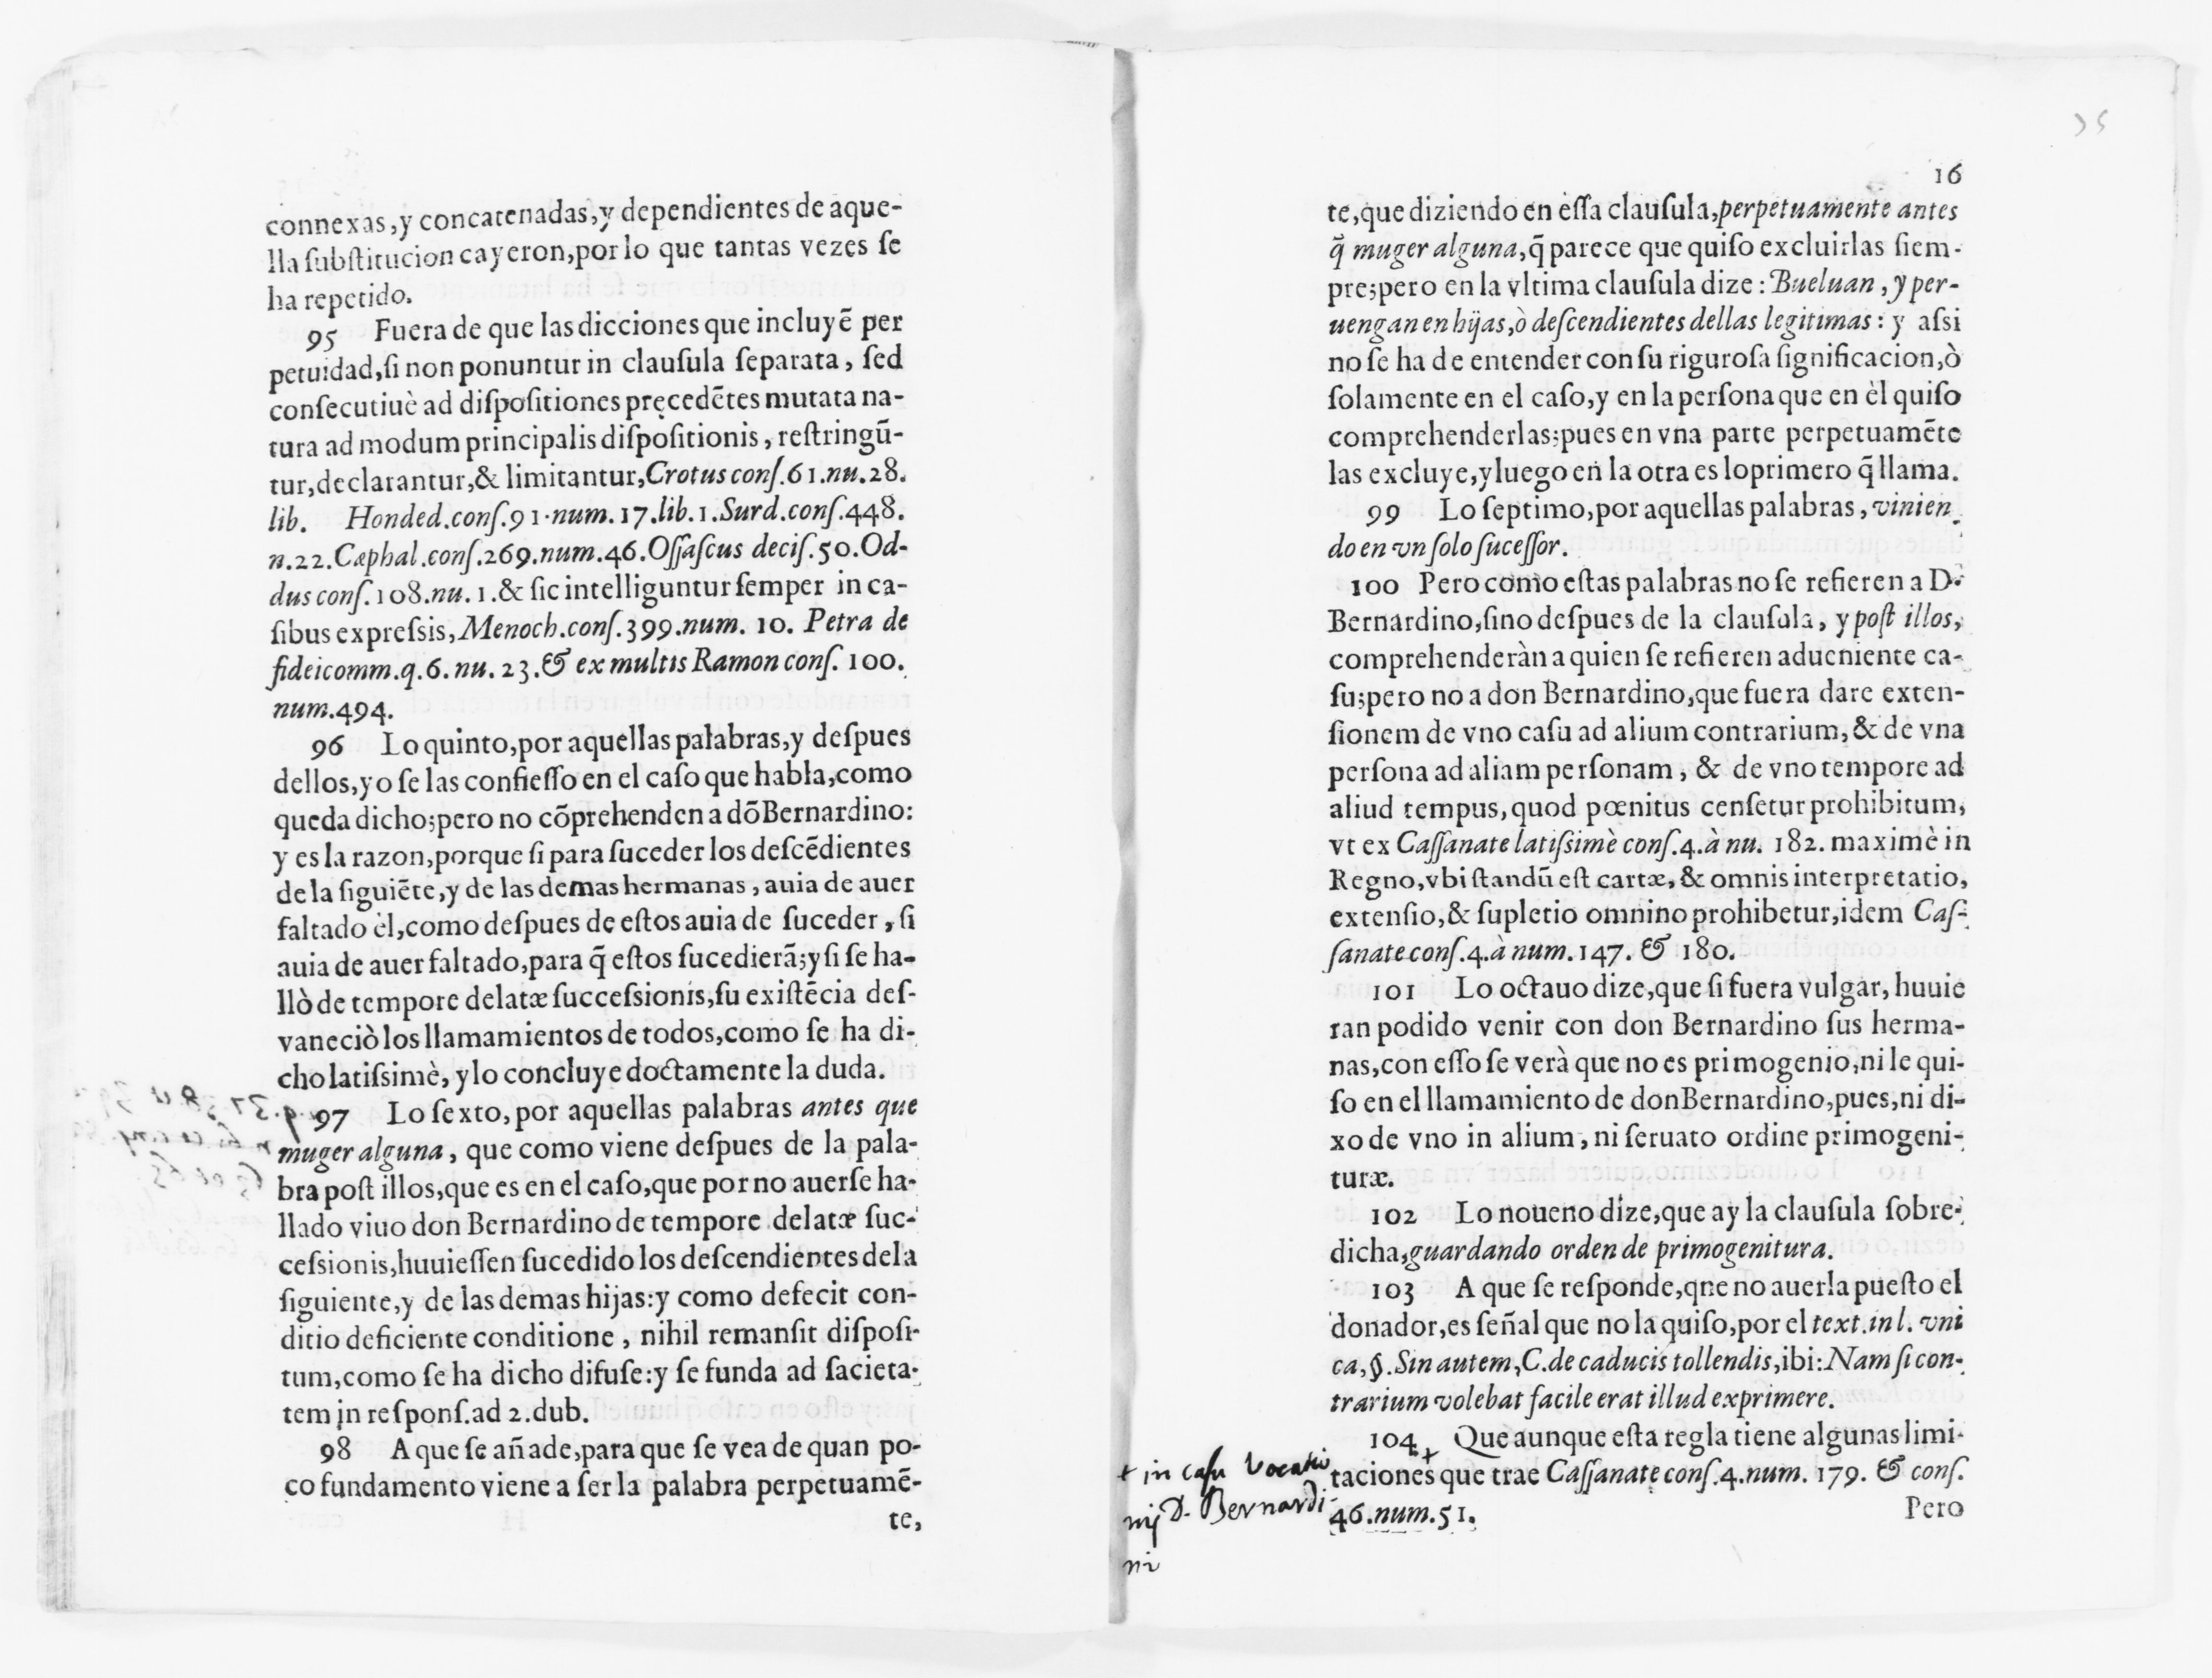 connexas, y concatenadas, y dependientes de aque-
lla substitucion cayeron, por lo que tantas vezes se
ha repetido.
95 Fuera de que las dicciones que incluyẽ per
petuidad, si non ponuntur in clausula separata, sed
consecutiuè ad dispositiones pręcedẽtes mutata na-
tura ad modum principalis dispositionis, restringũ-
tur, declarantur, & limitantur, Crotus cons. 61. nu. 28.
lib. Honded. cons. 91. num. 17. lib. 1. Surd. cons. 448.
n. 22. Cæphal. cons. 269. num. 46. Ossascus decis. 50. Od-
dus cons. 108. nu. 1. & sic intelliguntur semper in ca-
sibus expressis, Menoch. cons. 399. num. 10. Petra de
fideicomm. q. 6. nu. 23. & ex multis Ramon cons. 100.
num. 494.
96 Lo quinto, por aquellas palabras, y despues
dellos, yo se las confiesso en el caso que habla, como
queda dicho; pero no cõprehenden a dõ Bernardino:
y es la razon, porque si para suceder los descẽdientes
de la siguiẽte, y de las demas hermanas, auia de auer
faltado èl, como despues de estos auia de suceder, si
auia de auer faltado, para q̃ estos sucedierã; y si se ha-
llò de tempore delatæ successionis, su existẽcia des-
vaneciò los llamamientos de todos, como se ha di-
cho latissimè, y lo concluye doctamente la duda.
97 Lo sexto, por aquellas palabras antes que
muger alguna, que como viene despues de la pala-
bra post illos, que es en el caso, que por no auerse ha-
llado viuo don Bernardino de tempore delatæ suc-
cessionis, huuiessen sucedido los descendientes de la
siguiente, y de las demas hijas: y como defecit con-
ditio deficiente conditione, nihil remansit disposi-
tum, como se ha dicho difuse: y se funda ad sacieta-
tem in respons. ad 2. dub.
98 A que se añade, para que se vea de quan po-
co fundamento viene a ser la palabra perpetuamẽ-
te,
16
te, que diziendo en essa clausula, perpetuamente antes
q̃ muger alguna, q̃ parece que quiso excluirlas siem-
pre; pero en la vltima clausula dize: Bueluan, y per-
uengan en hijas, ò descendientes dellas legitimas: y assi
no se ha de entender con su rigurosa significacion, ò
solamente en el caso, y en la persona que en èl quiso
comprehenderlas; pues en vna parte perpetuamẽte
las excluye, y luego en la otra es lo primero q̃ llama.
99 Lo septimo, por aquellas palabras, vinien
do en vn solo sucessor.
100 Pero como estas palabras no se refieren a D.
Bernardino, sino despues de la clausula, y post illos,
comprehenderàn a quien se refieren adueniente ca-
su; pero no a don Bernardino, que fuera dare exten-
sionem de vno casu ad alium contrarium, & de vna
persona ad aliam personam, & de vno tempore ad
aliud tempus, quod pœnitus censetur prohibitum,
vt ex Cassanate latissimè cons. 4. à nu. 182. maximè in
Regno, vbi standũ est cartæ, & omnis interpretatio,
extensio, & supletio omnino prohibetur, idem Cas-
sanate cons. 4. à num. 147. & 180.
101 Lo octauo dize, que si fuera vulgar, huuie
ran podido venir con don Bernardino sus herma-
nas, con esso se verà que no es primogenio, ni le qui-
so en el llamamiento de don Bernardino, pues, ni di-
xo de vno in alium, ni seruato ordine primogeni-
turæ.
102 Lo noueno dize, que ay la clausula sobre-
dicha, guardando orden de primogenitura.
103 A que se responde, qne no auerla puesto el
donador, es señal que no la quiso, por el text. in l. vni
ca, §. Sin autem, C. de caducis tollendis, ibi: Nam si con-
trarium volebat facile erat illud exprimere.
104 + Que aunque esta regla tiene algunas limi-
taciones que trae Cassanate cons. 4. num. 179. & cons.
46. num. 51.
Pero
+ in casu vocatio
nij D. Bernardi-
ni